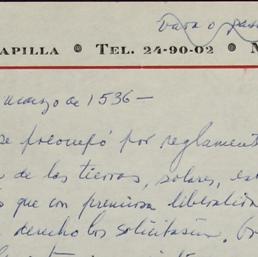 para o
APILLA • TEL. 24-90-02 • M
marzo de 1536 —
se preocupó por reglament
de las tierras, solares, es
que con premiosa liberalida
derecho los solicitasen.